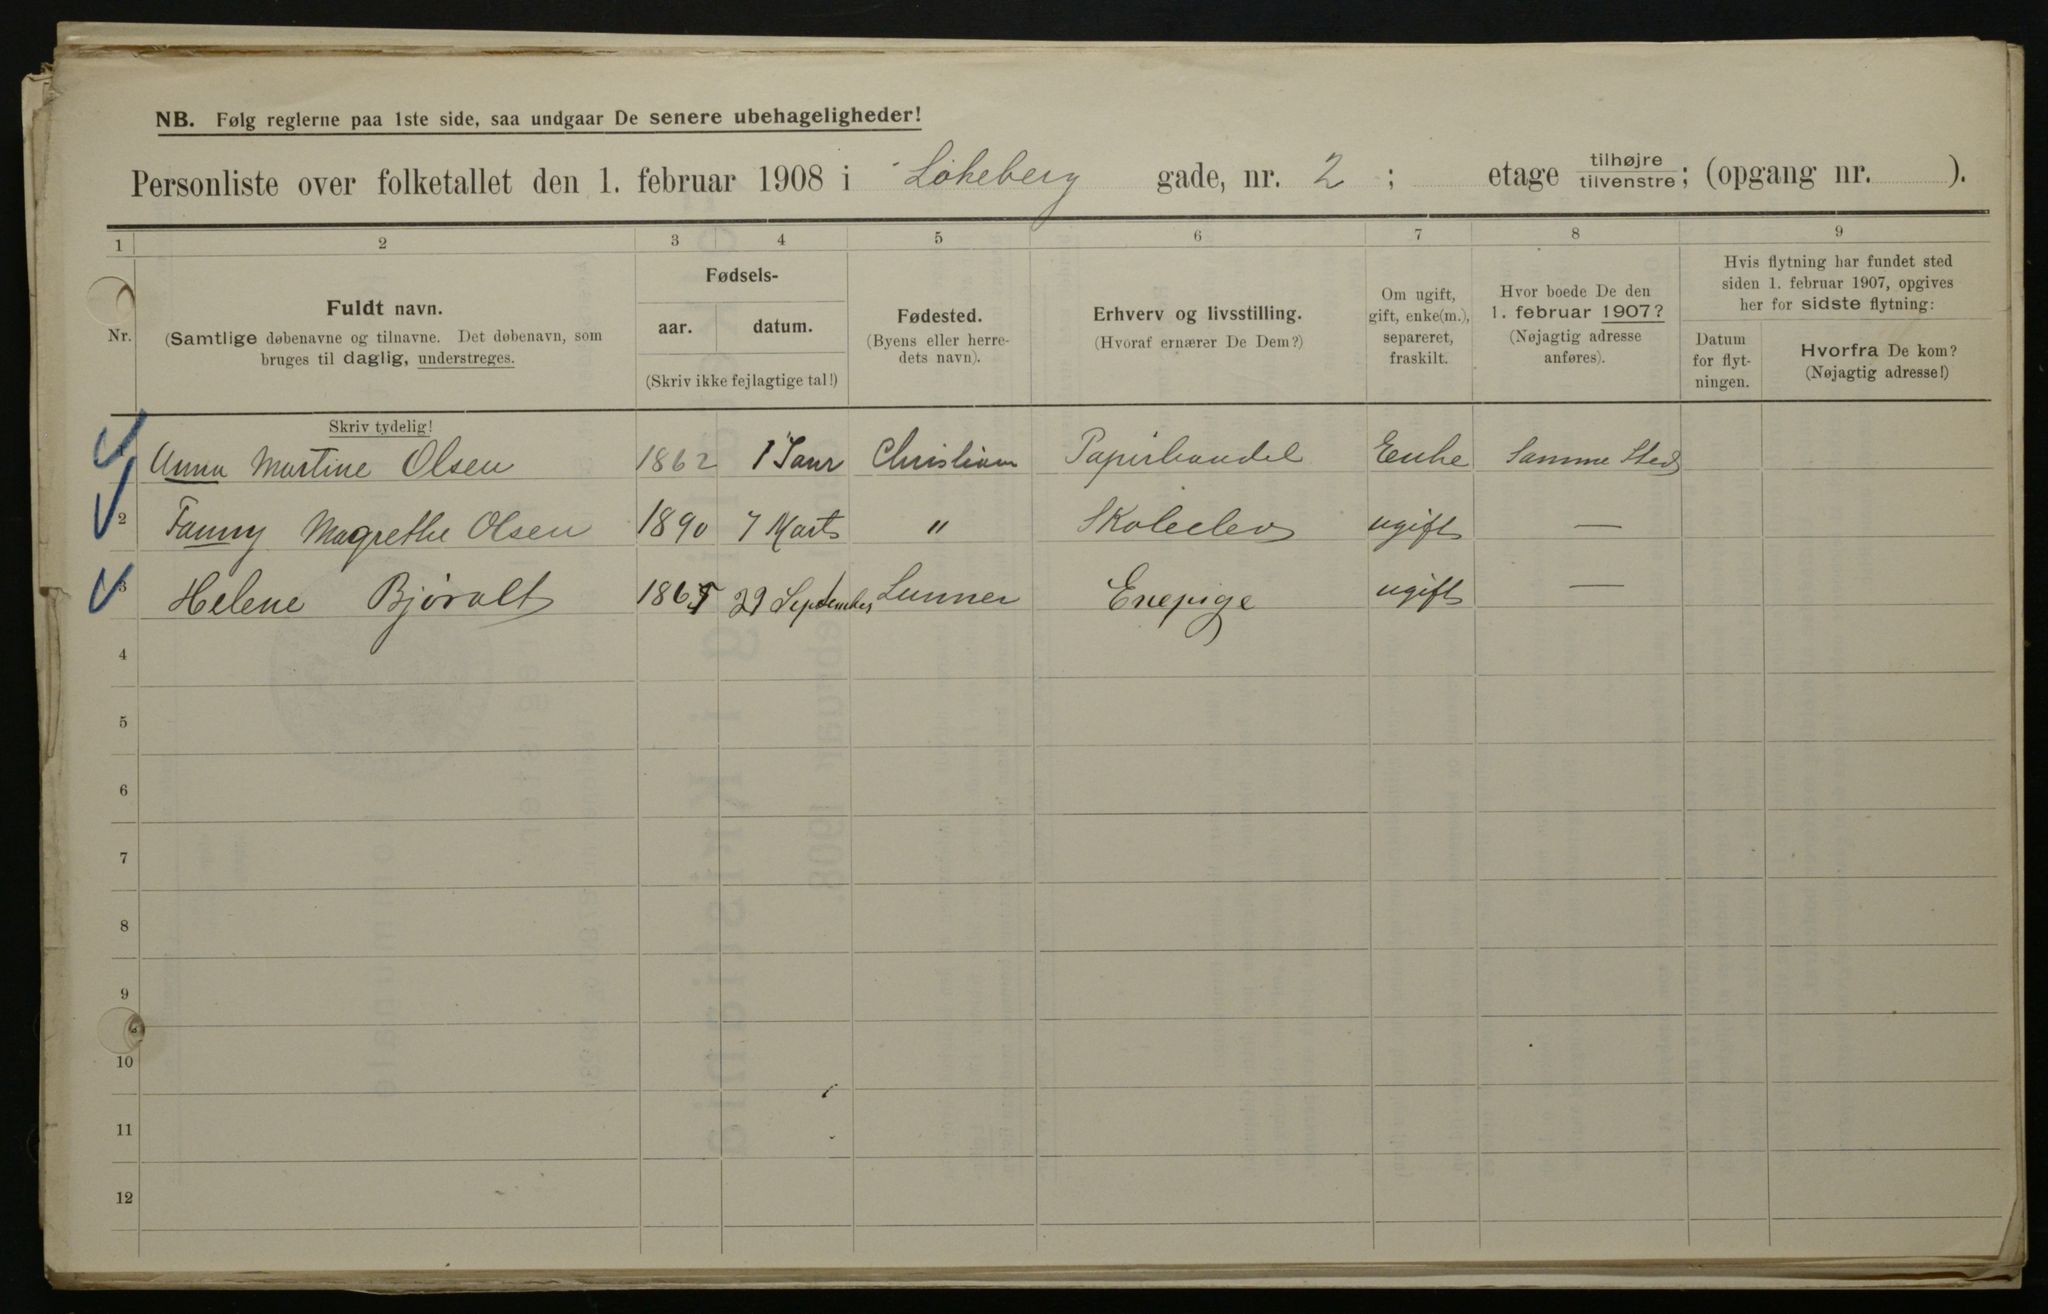 NB. Følg reglerne paa 1ste side, saa undgaar De senere ubehageligheder!
Personliste over folketallet den 1. februar 1908 i Løkeberg gade, nr. 2; etage tilhøjre/tilvenstre; (opgang nr. ).
1 2 3 4 5 6 7 8 9
Nr.
Fuldt navn.
(Samtlige døbenavne og tilnavne. Det døbenavn, som
bruges til daglig, understreges.
Skriv tydelig!
Fødsels-
aar. datum.
(Skriv ikke fejlagtige tal!)
Fødested.
(Byens eller herre-
dets navn).
Erhverv og livsstilling.
(Hvoraf ernærer De Dem?)
Om ugift,
gift, enke(m.),
separeret,
fraskilt.
Hvor boede De den
1. februar 1907?
(Nøjagtig adresse
anføres).
Hvis flytning har fundet sted
siden 1. februar 1907, opgives
her for sidste flytning:
Datum
for flyt-
ningen.
Hvorfra De kom?
(Nøjagtig adresse!)
Anna Martine Olsen 1862 1 Janr Christiania Papirhandel Enke Samme Sted
2 Fanny Magrethe Olsen 1890 7 Marts " Skoleelev ugift —
3 Helene Bjøralt 1865 29 September Lunner Enepige ugift —
4
5
6
7
8
9
10
11
12